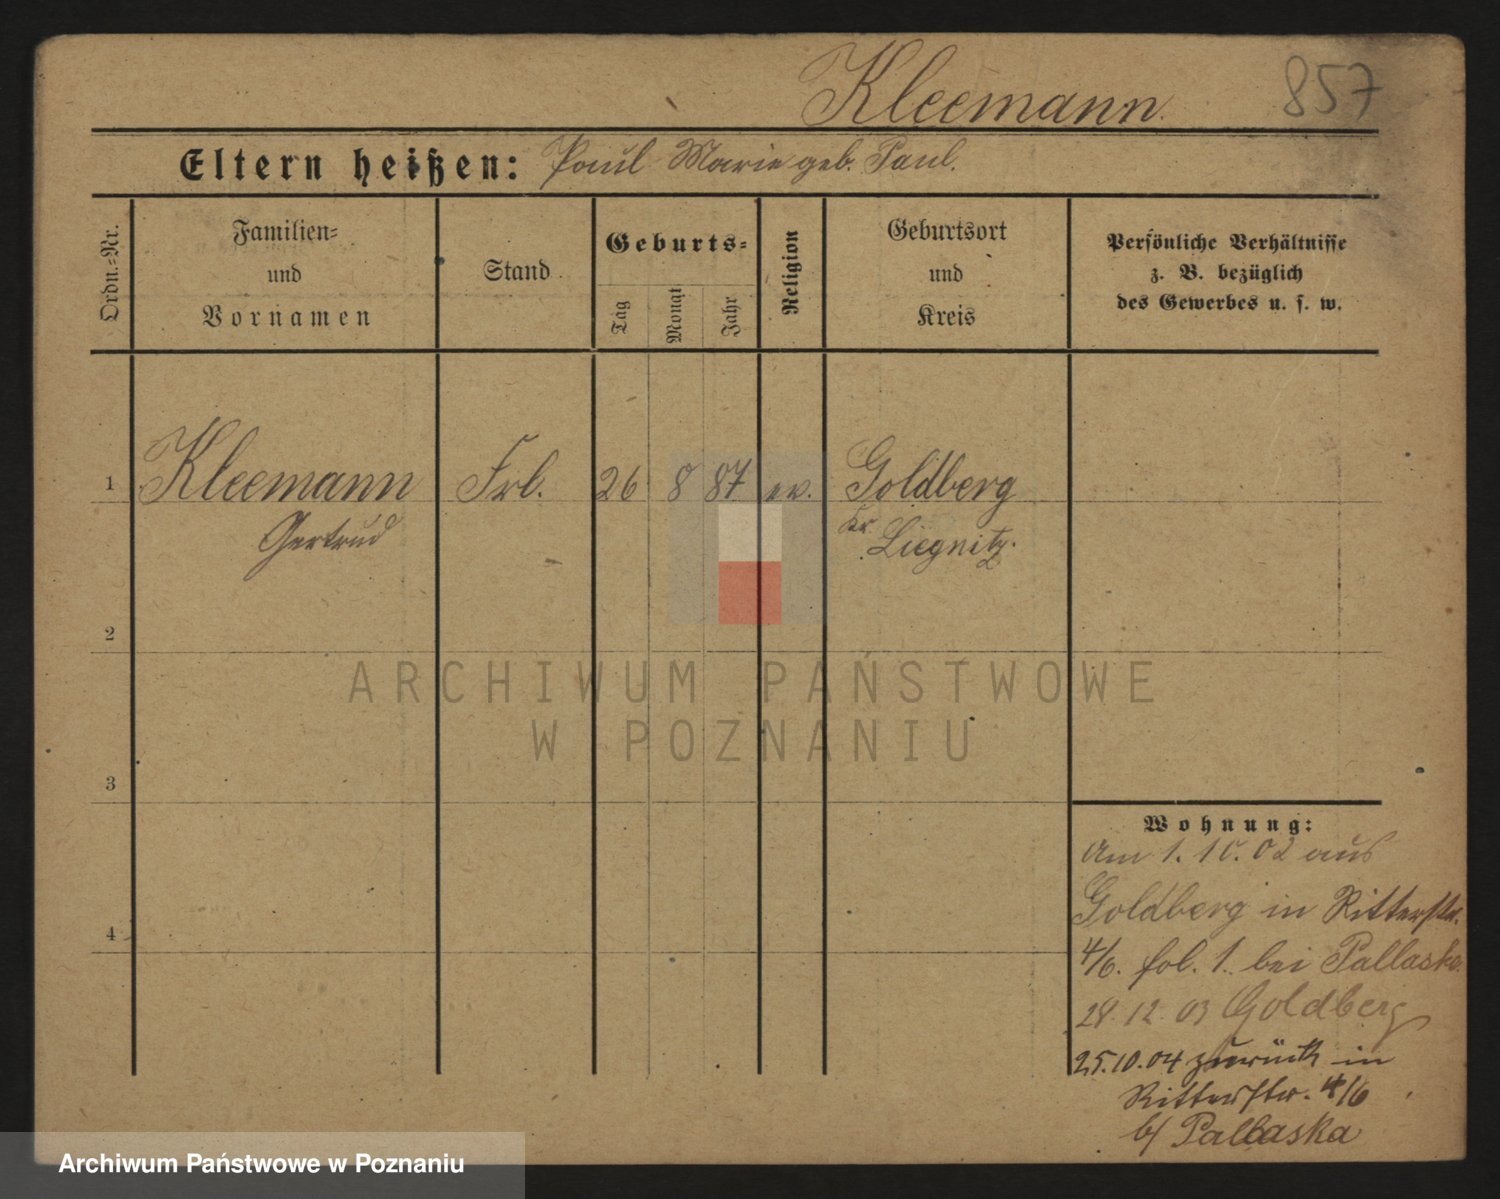 857
Kleemann.
Eltern heißen: Paul Marie geb. Paul.
Ordn.-Nr.
Familien-
und
Vornamen
Stand
Geburts-
Tag
Monat
Jahr
Religion
Geburtsort
und
Kreis
Persönliche Verhältnisse
z. B. bezüglich
des Gewerbes u. s. w.
1 Kleemann Frl. 26 8 87 ev. Goldberg
Gertrud Kr. Liegnitz.
2
3
4
ARCHIWUM PAŃSTWOWE
W POZNANIU
Wohnung:
Am 1. 10. 02 aus
Goldberg in Ritterstr.
4/6. fol. 1. bei Pallaska
28. 12. 03 Goldberg
25.10.04 zurück in
Ritterstr. 4/6
b/ Pallaska
Archiwum Państwowe w Poznaniu